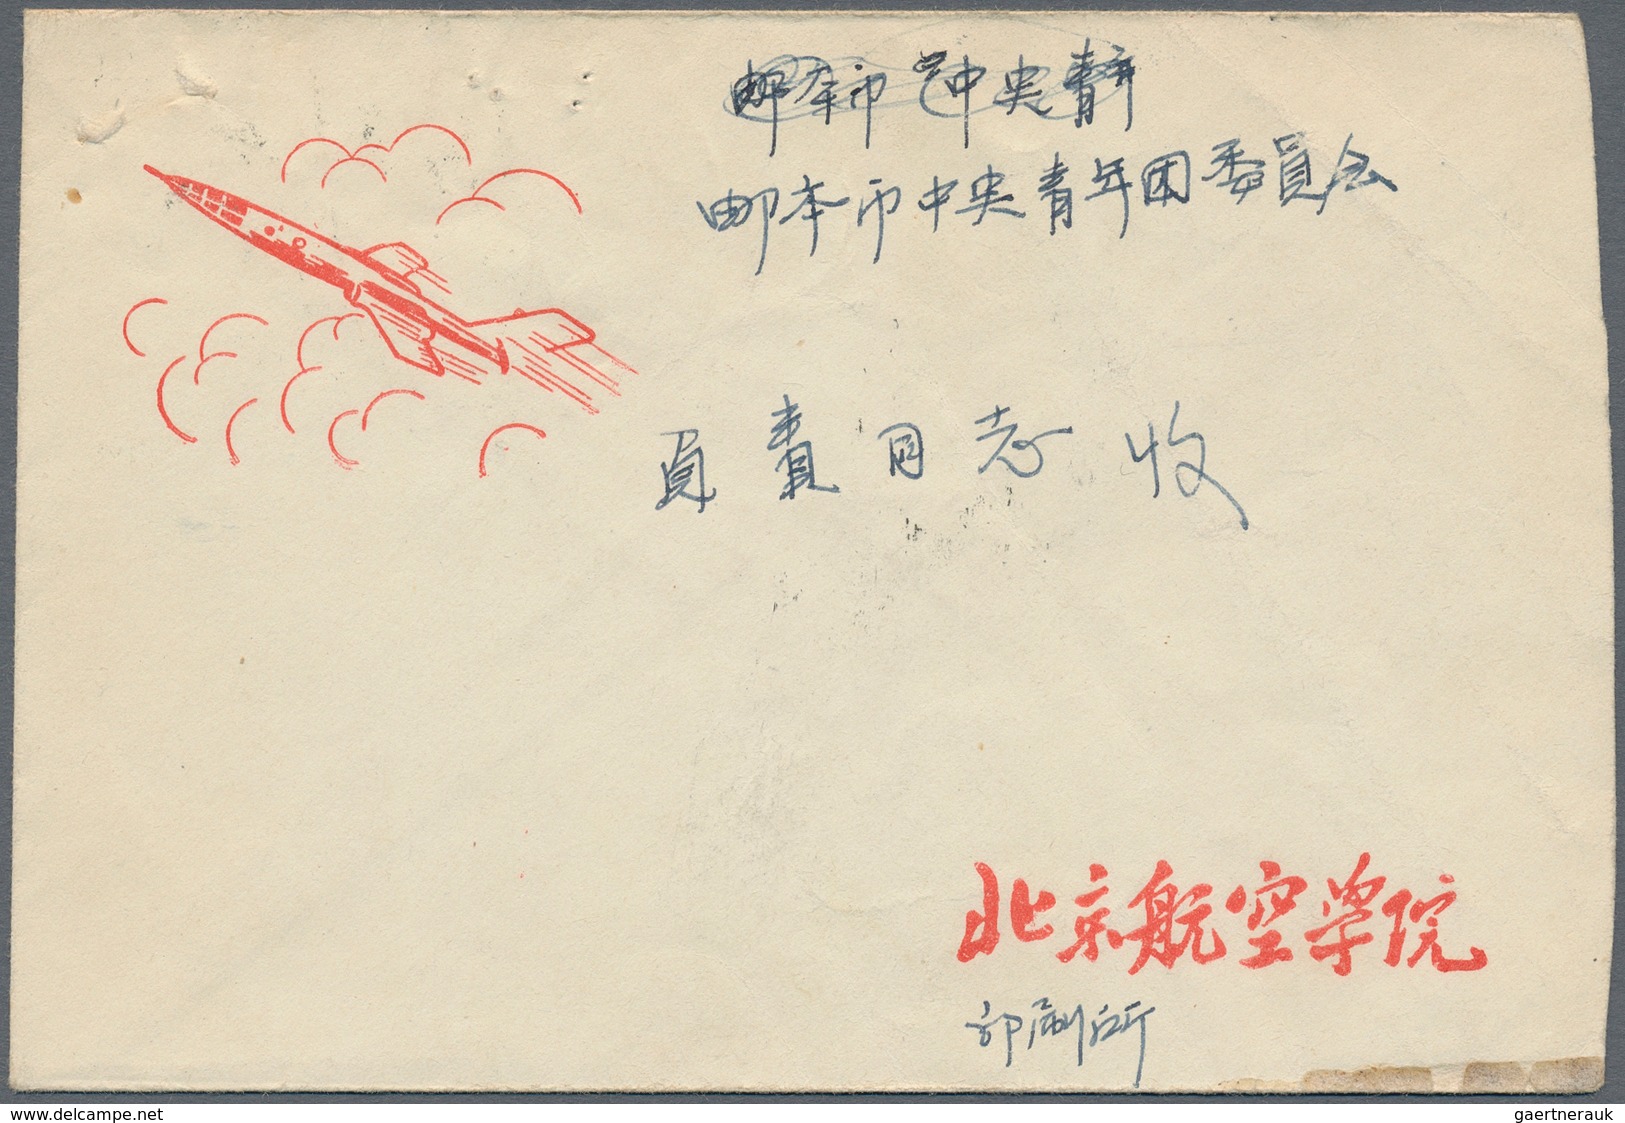 邮本市中央青
邮本市中央青年团委員会
負責同志 收
北京航空学院
印刷所
delcampe.net
gaertnerauk